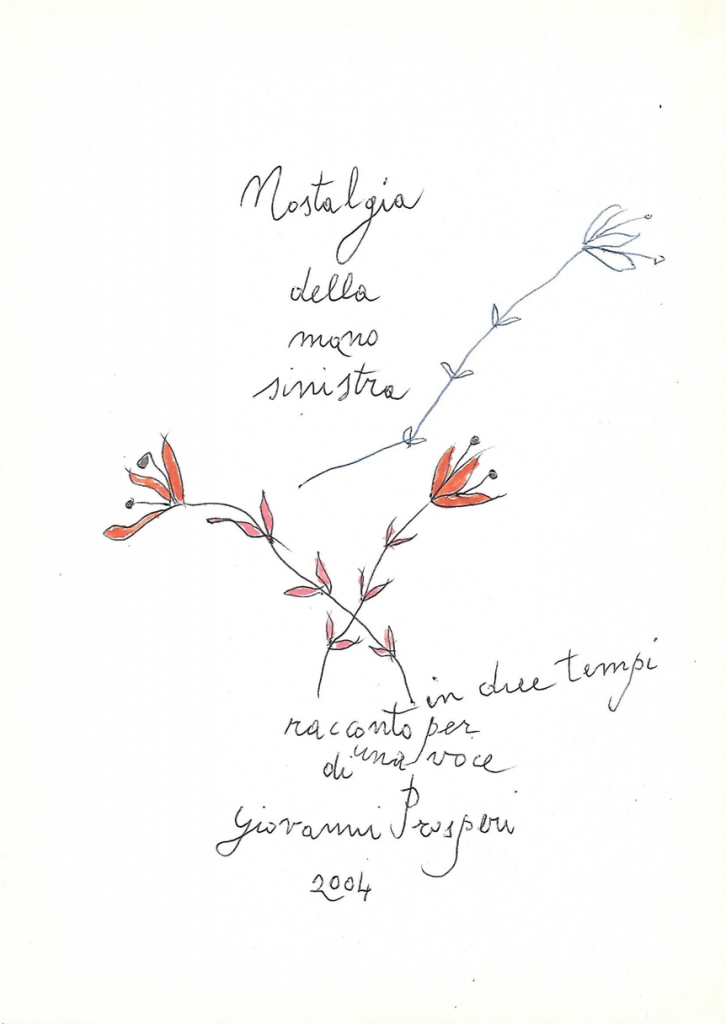 Nostalgia
della
mano
sinistra
in due tempi
racconto per
una voce
di
Giovanni Prosperi
2004